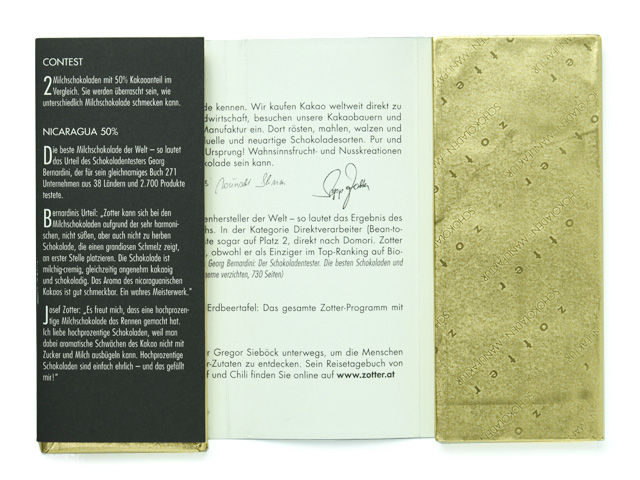 CONTEST
2 Milchschokoladen mit 50% Kakaoanteil im
Vergleich. Sie werden überrascht sein, wie
unterschiedlich Milchschokolade schmecken kann.
NICARAGUA 50%
Die beste Milchschokolade der Welt – so lautet
das Urteil des Schokoladentesters Georg
Bernardini, der für sein gleichnamiges Buch 271
Unternehmen aus 38 Ländern und 2.700 Produkte
testete.
Bernardinis Urteil: „Zotter kann sich bei den
Milchschokoladen aufgrund der sehr harmoni-
schen, nicht süßen, aber auch nicht zu herben
Schokolade, die einen grandiosen Schmelz zeigt,
an erster Stelle platzieren. Die Schokolade ist
milchig-cremig, gleichzeitig angenehm kakaoig
und schokoladig. Das Aroma des nicaraguanischen
Kakaos ist gut schmeckbar. Ein wahres Meisterwerk.“
Josef Zotter: „Es freut mich, dass eine hochprozen-
tige Milchschokolade das Rennen gemacht hat.
Ich liebe hochprozentige Schokoladen, weil man
dabei aromatische Schwächen des Kakao nicht mit
Zucker und Milch ausbügeln kann. Hochprozentige
Schokoladen sind einfach ehrlich – und das gefällt
mir!“
de kennen. Wir kaufen Kakao weltweit direkt zu
dwirtschaft, besuchen unsere Kakaobauern und
Manufaktur ein. Dort rösten, mahlen, walzen und
uelle und neuartige Schokoladesorten. Pur und
Ursprung! Wahnsinnsfrucht- und Nusskreationen
kolade sein kann.
enhersteller der Welt – so lautet das Ergebnis des
chs. In der Kategorie Direktverarbeiter (Bean-to-
te sogar auf Platz 2, direkt nach Domori. Zotter
, obwohl er als Einziger im Top-Ranking auf Bio-
Georg Bernardini: Der Schokoladentester. Die besten Schokoladen und
eme verzichten, 730 Seiten)
Erdbeertafel: Das gesamte Zotter-Programm mit
r Gregor Sieböck unterwegs, um die Menschen
r-Zutaten zu entdecken. Sein Reisetagebuch von
f und Chili finden Sie online auf www.zotter.at
zotter
SCHOKOLADEN MANUFAKTUR